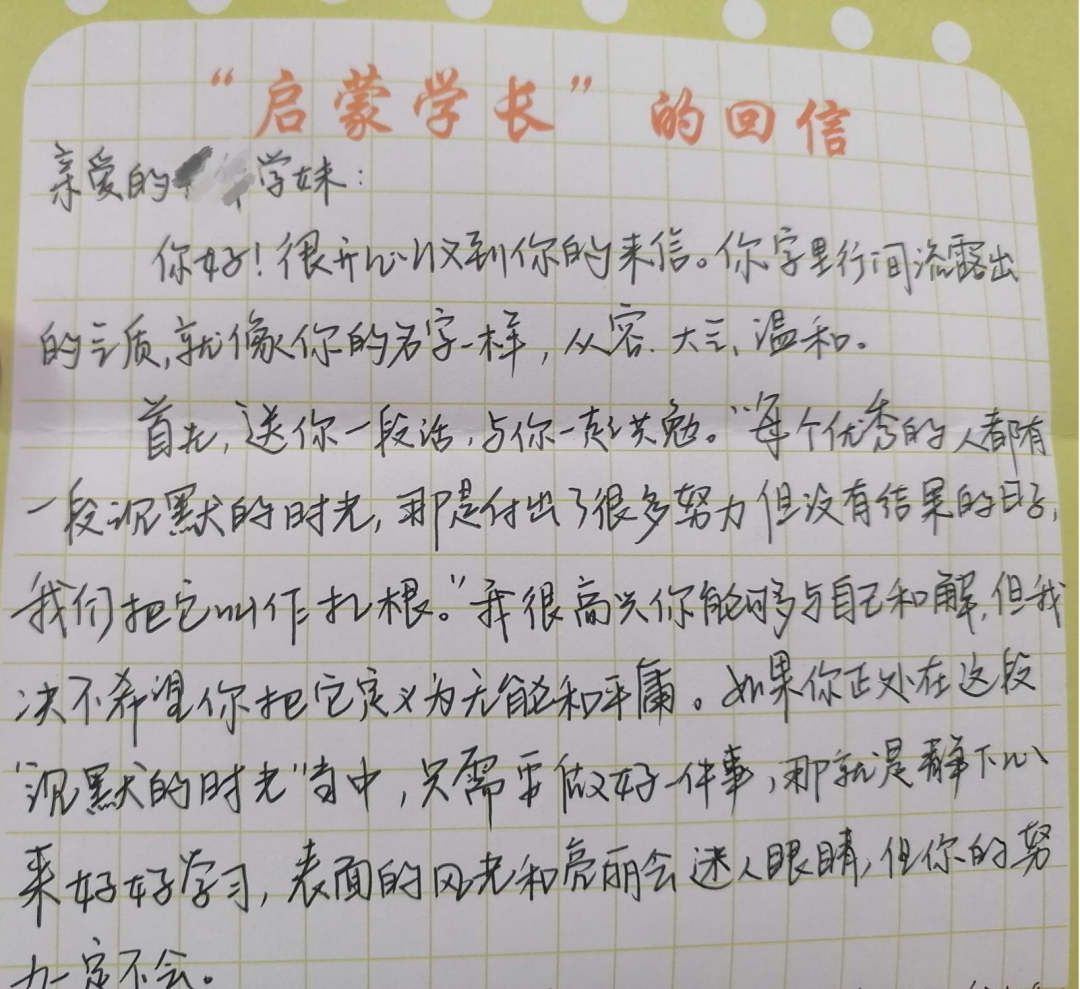 “启蒙学长”的回信
亲爱的 学妹：
你好！很开心收到你的来信。你字里行间流露出
的气质，就像你的名字一样，从容、大气、温和。
首先，送你一段话，与你一起共勉。“每个优秀的人都有
一段沉默的时光，那是付出了很多努力但没有结果的日子，
我们把它叫作扎根。”我很高兴你能够与自己和解，但我
决不希望你把它定义为无能和平庸。如果你正处在这段
“沉默的时光”当中，只需要做好一件事，那就是静下心
来好好学习，表面的风光和亮丽会迷人眼睛，但你的努
力一定不会。